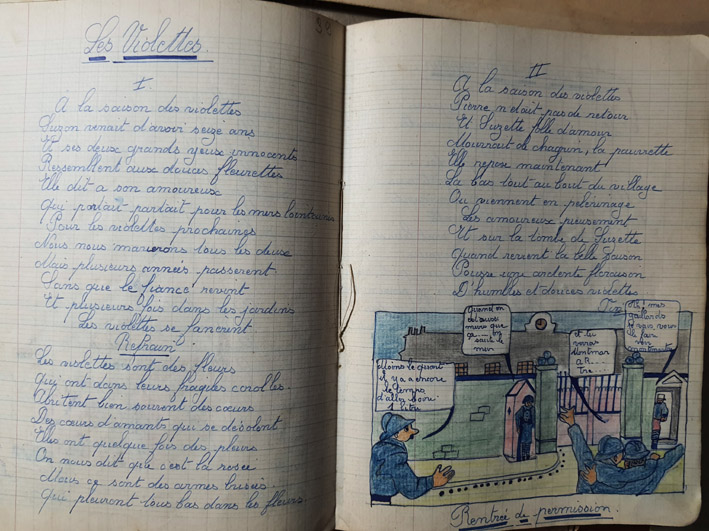 Les Violettes.
I
A la saison des violettes
Suzon venait d'avoir seize ans
Et ses deux grands yeux innocents
Ressemblent aux douces fleurettes
Elle dit a son amoureux
Qui partait partout pour les mers lointaines
Pour les violettes prochaines
Nous nous marierons tous les deux
Mais plusieurs années passèrent
Sans que le fiancé revint
Et plusieurs fois dans les jardins
Les violettes se fanèrent
Refrain
Les violettes sont des fleurs
Qui ont dans leurs fragiles corolles
Abritent bien souvent des cœurs
Des cœurs d'amants qui se désolent
Elles ont quelque fois des pleurs
On nous dit que c'est la rosée
Mais ce sont des
Qui pleurent tous bas dans les fleurs.
II
A la saison des violettes
Pierre n'était pas de retour
Et Suzette folle d'amour
Mourrait de chagrin, la pauvrette
Elle repose maintenant
La bas tout au bout du village
Ou viennent en pelerinage
Les amoureux pieusement
Et sur la tombe de Suzette
Quand revient la belle saison
Pousse une ardente floraison
D'humbles et douces violettes
Fin
Moins le quart
il y a encore
le temps
d'aller boire
1 litre
Quand on
murs que
ça
saute le
mur
et tu
verras
Montmar
a R...
tre...
Hé! mes
gaillards
vais vous
faire
voir
Rentrée de permission.